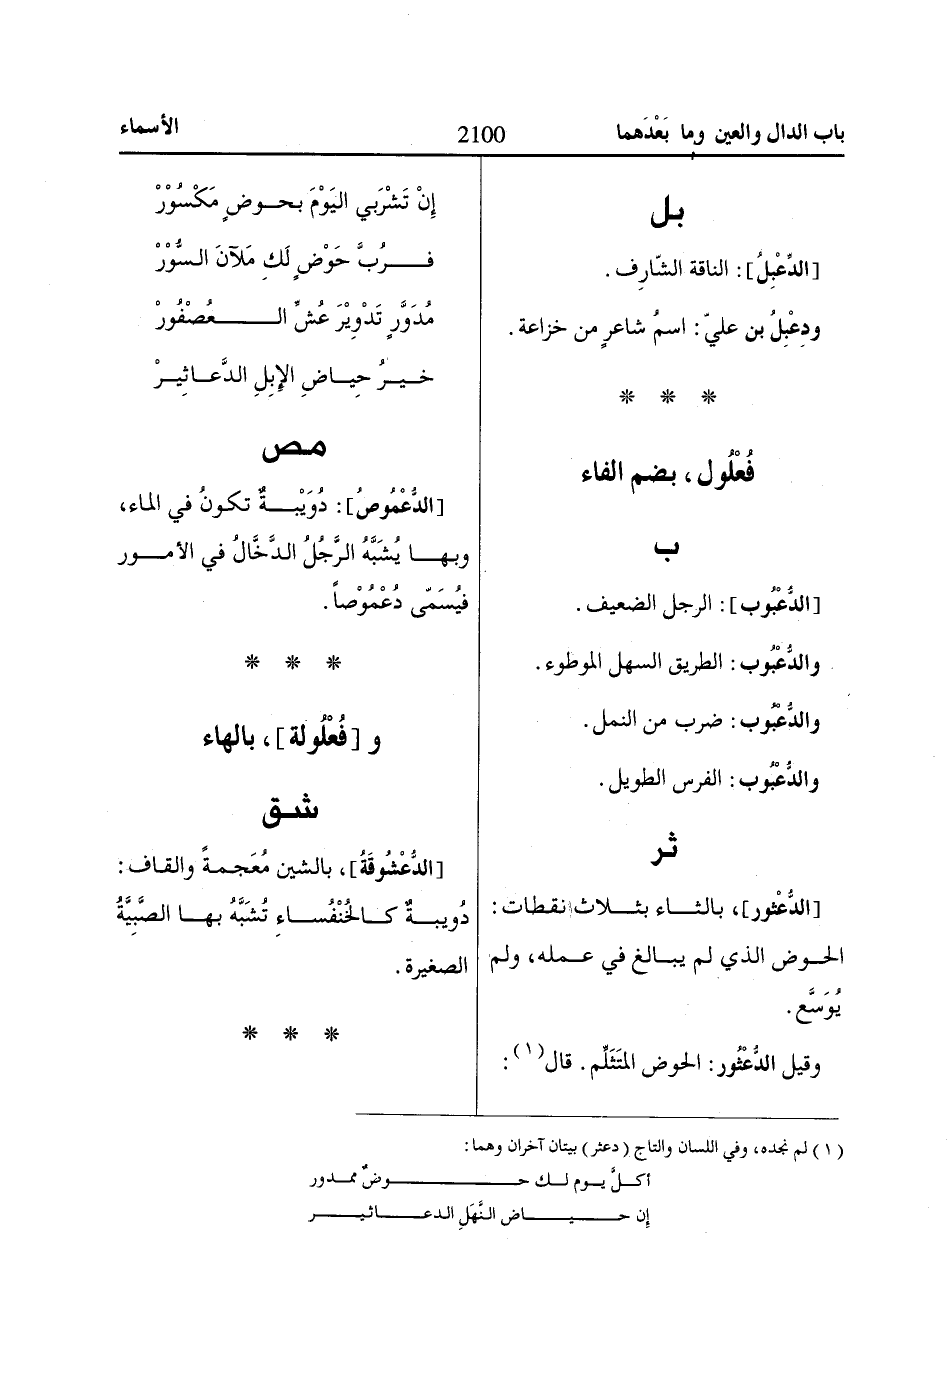 باب الدال والعين وما بَعْدَهما 2100 الأسماء
بل
[الدِّعْبِلُ]: الناقة الشّارِف.
ودِعْبِلُ بن عليّ: اسمُ شاعرٍ من خزاعة.
* * *
فُعْلُول، بضم الفاء
ب
[الدُّعْبُوب]: الرجل الضعيف.
والدُّعْبُوب: الطريق السهل الموطوء.
والدُّعْبُوب: ضرب من النمل.
والدُّعْبُوب: الفرس الطويل.
ثر
[الدُّعْثور]، بالثاء بثلاث نقطات:
الحوض الذي لم يبالغ في عمله، ولم
يُوَسَّع.
وقيل الدُّعْثُور: الحوض المُتَثَلِّم. قال(١):
إِنْ تَشْرَبي اليَوْمَ بحوضٍ مَكْسُوْرْ
فرُبَّ حَوْضٍ لَكِ مَلآنَ السُّوْرْ
مُدَوَّرٍ تَدْوِيْرَ عُشِّ العُصْفُوْرْ
خيرُ حِياضِ الإِبِلِ الدَّعاثيرْ
مص
[الدُّعْمُوصُ]: دُوَيْبةٌ تكونُ في الماء،
وبها يُشَبَّهُ الرَّجُلُ الدَّخَّالُ في الأمور
فيُسَمّى دُعْمُوْصاً.
* * *
و [فُعْلُولة]، بالهاء
شق
[الدُّعْشُوقَةُ]، بالشين مُعَجمةً والقاف:
دُويبةٌ كالخُنْفُساءِ تُشَبَّهُ بها الصَّبِيَّةُ
الصغيرة.
* * *
(١) لم نجده، وفي اللسان والتاج (دعثر) بيتان آخران وهما:
أكلَّ يوم لك حوضٌ ممدور
إن حياض النَّهَلِ الدعاثير